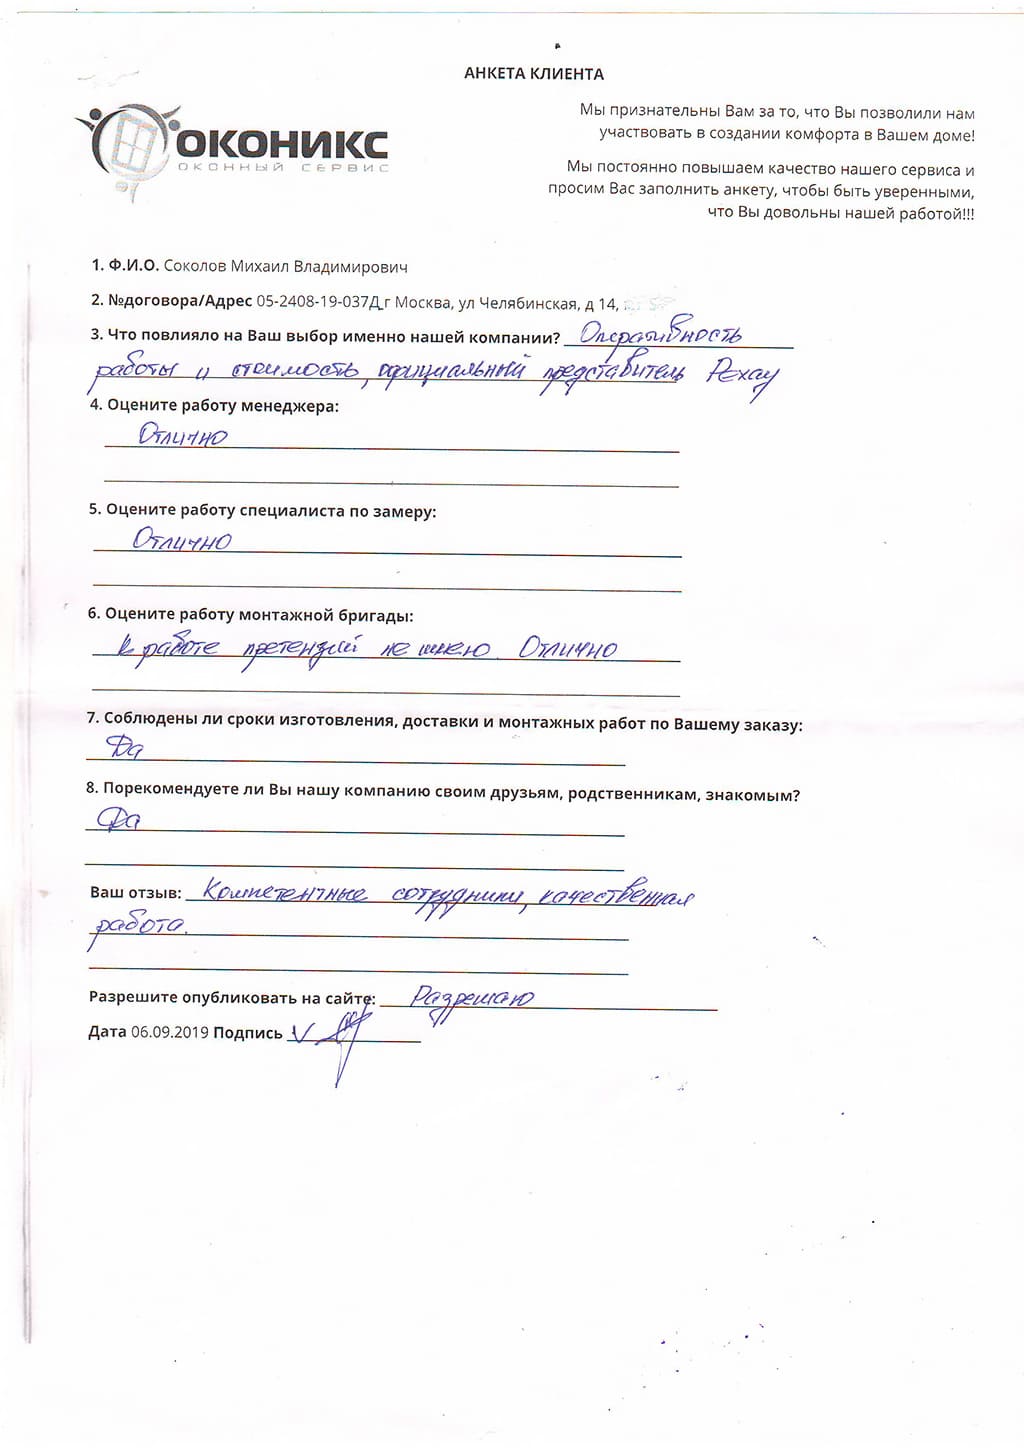 АНКЕТА КЛИЕНТА
ОКОНИКС
ОКОННЫЙ СЕРВИС
Мы признательны Вам за то, что Вы позволили нам
участвовать в создании комфорта в Вашем доме!
Мы постоянно повышаем качество нашего сервиса и
просим Вас заполнить анкету, чтобы быть уверенными,
что Вы довольны нашей работой!!!
1. Ф.И.О. Соколов Михаил Владимирович
2. №договора/Адрес 05-2408-19-037Д,г Москва, ул Челябинская, д 14,
3. Что повлияло на Ваш выбор именно нашей компании? Оперативность
работы и стоимость, официальный представитель Рехау
4. Оцените работу менеджера:
Отлично
5. Оцените работу специалиста по замеру:
Отлично
6. Оцените работу монтажной бригады:
К работе претензий не имею. Отлично
7. Соблюдены ли сроки изготовления, доставки и монтажных работ по Вашему заказу:
Да
8. Порекомендуете ли Вы нашу компанию своим друзьям, родственникам, знакомым?
Да
Ваш отзыв: Компетентные сотрудники, качественная
работа.
Разрешите опубликовать на сайте: Разрешаю
Дата 06.09.2019 Подпись V